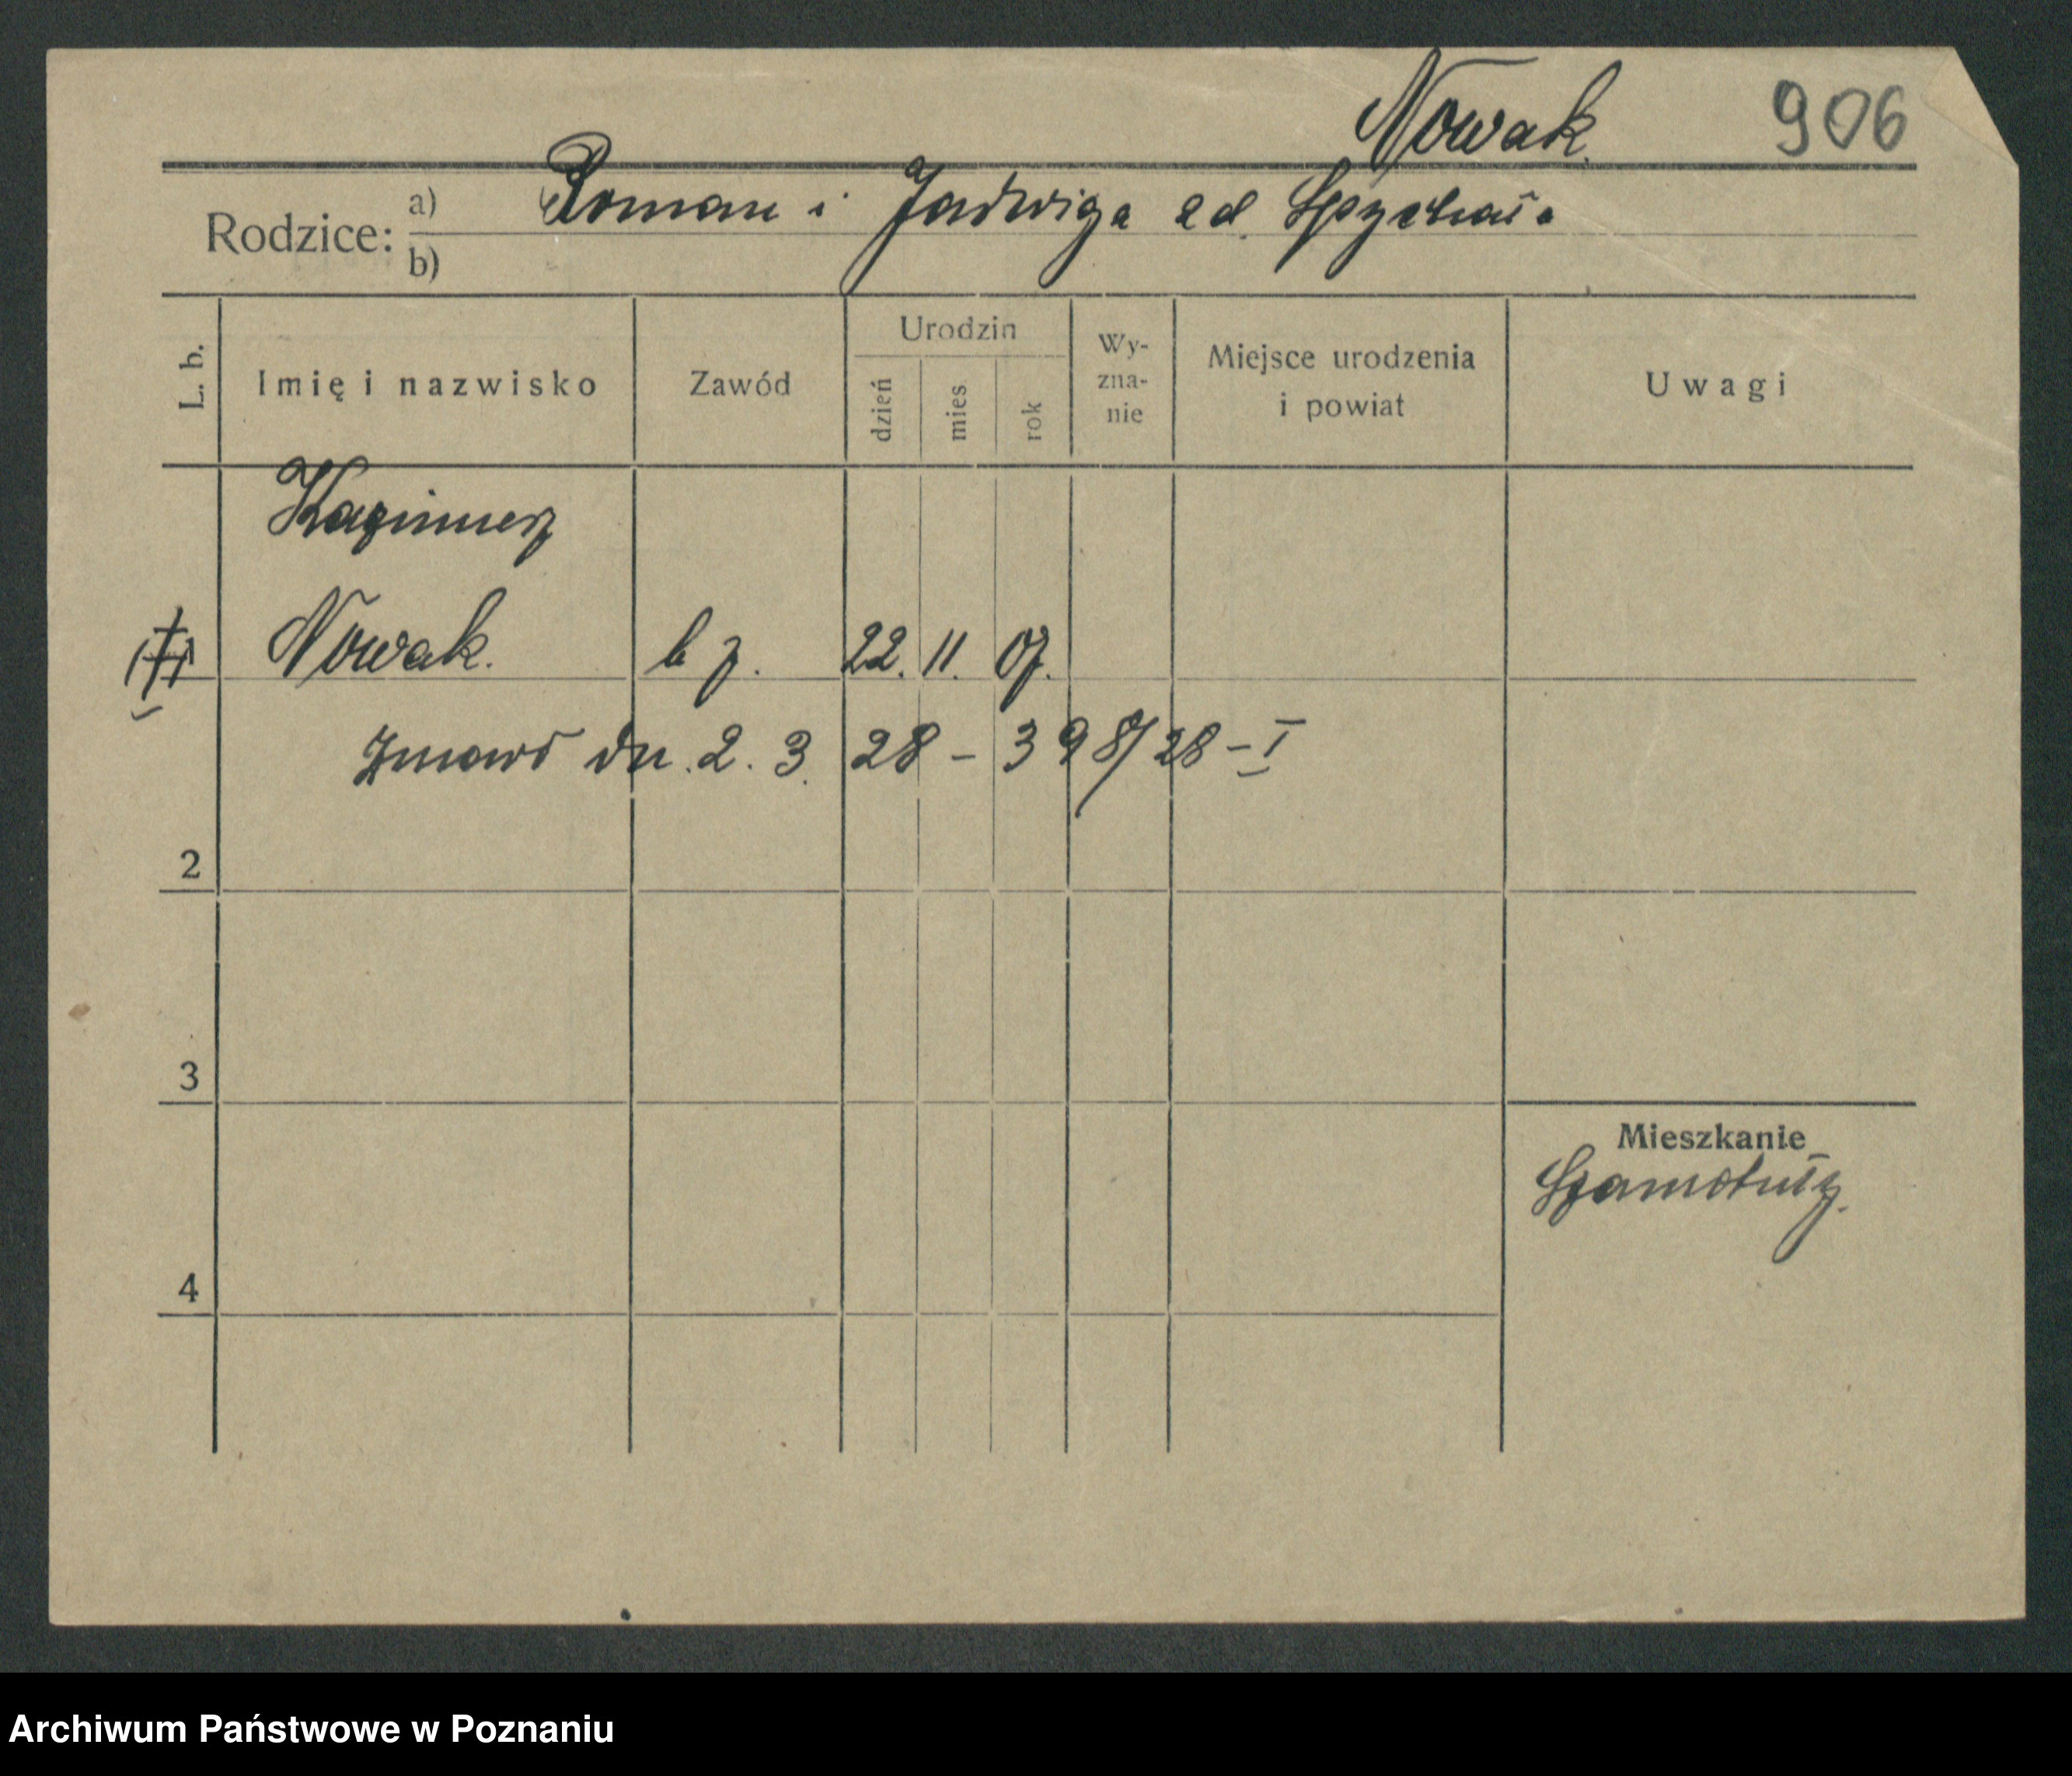 Nowak. 906
Rodzice: a) Roman i Jadwiga zd. Spychała
b)
L. b. Imię i nazwisko Zawód Urodzin dzień mies rok Wy-zna-nie Miejsce urodzenia i powiat Uwagi
Kazimierz
Nowak. b z. 22. 11. 07.
Zmarł dn. 2. 3. 28 - 398/28 - I
2
3
Mieszkanie
Szamotuły.
4
Archiwum Państwowe w Poznaniu